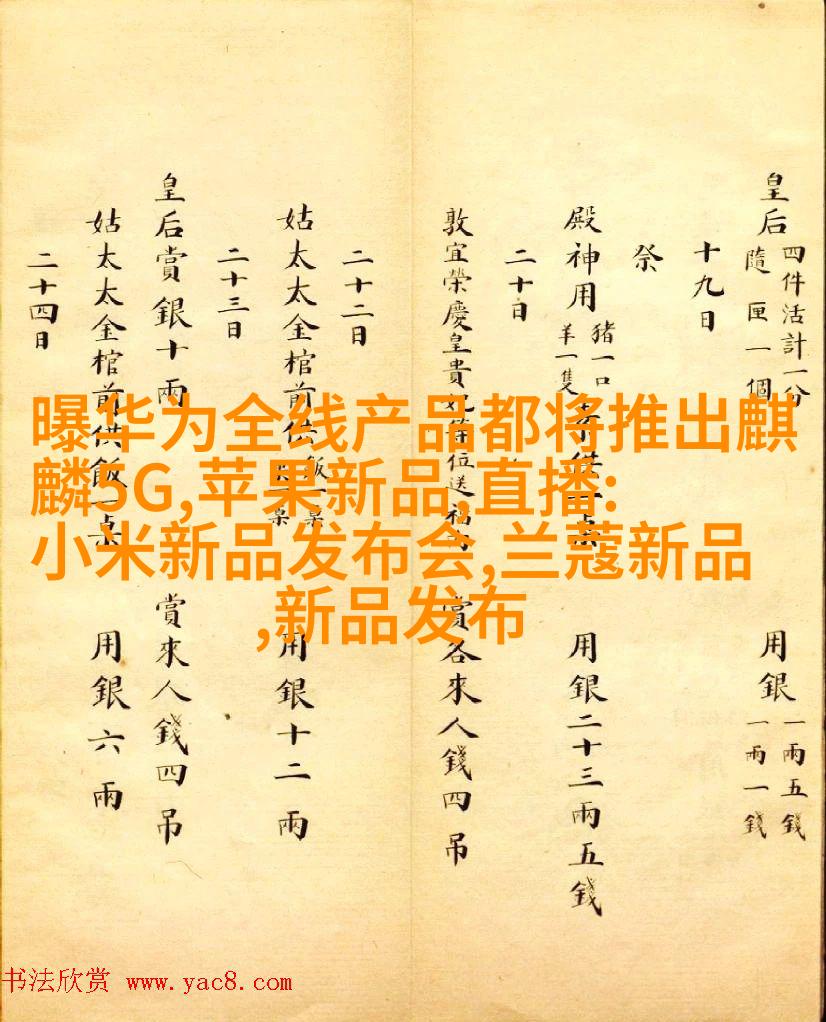 曝华为全线产品都将推出麒
麟5G,苹果新品,直播:
小米新品发布会,兰蔻新品
,新品发布
皇后 四件活計一分
隨匣一個 用銀 一兩五錢
一兩一錢
十九日
祭
殿神用 豬一口
羊一隻
供一桌 用銀二十三兩五錢
二十日
敦宜榮慶皇貴妃等位送福 賞各來人錢四吊
二十二日
姑太太金棺前供飯 桌 用銀十二兩
二十三日
皇后賞銀十兩 賞來人錢四吊
姑太太金棺前供飯一桌 用銀六兩
二十四日
书法欣赏 www.yac8.com